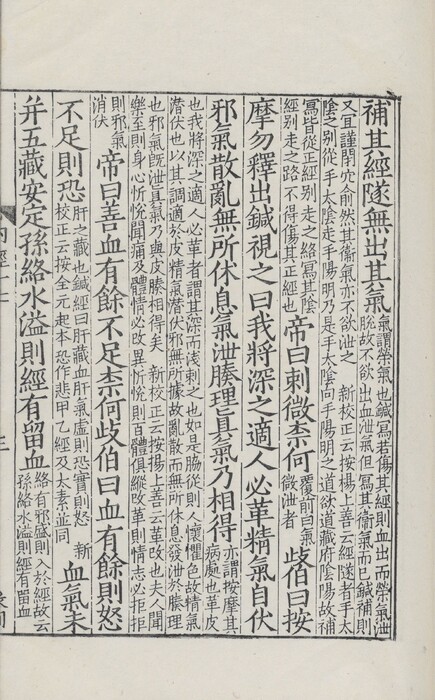 補其經隧無出其氣氣謂榮氣也鍼寫若傷其經則血出而榮氣泄脫故不欲出血泄氣但寫其衞氣而已鍼補則
又宜謹閉穴俞然其衞氣亦不欲泄之 新校正云按楊上善云經隧者手太陰之别從手太陰走手陽明乃是手太陰向手陽明之道欲道藏府陰陽故補
寫皆從正經别走之絡寫其陰經别走之路不得傷其正經也帝曰刺微柰何覆前曰氣微泄者歧伯曰按
摩勿釋出鍼視之曰我將深之適人必革精氣自伏
邪氣散亂無所休息氣泄腠理真氣乃相得亦謂按摩其病處也革皮
也我將深之適人必革者謂其深而淺刺之也如是脇從則人懷懼色故精氣潛伏也以其調適於皮精氣潛伏邪無所據故亂散而無所休息發泄於腠理
也邪氣旣泄真氣乃與皮腠相得矣 新校正云按楊上善云革改也夫人聞樂至則身心忻悅聞痛及體情必改異忻悅則百體俱縱改革則情志必拒拒
則邪氣消伏帝曰善血有餘不足柰何歧伯曰血有餘則怒
不足則恐肝之藏也鍼經曰肝藏血肝氣虛則恐實則怒 新校正云按全元起本恐作悲甲乙經及太素並同血氣未
并五藏安定孫絡水溢則經有留血絡有邪盛則入於經故云孫絡水溢則經有留血